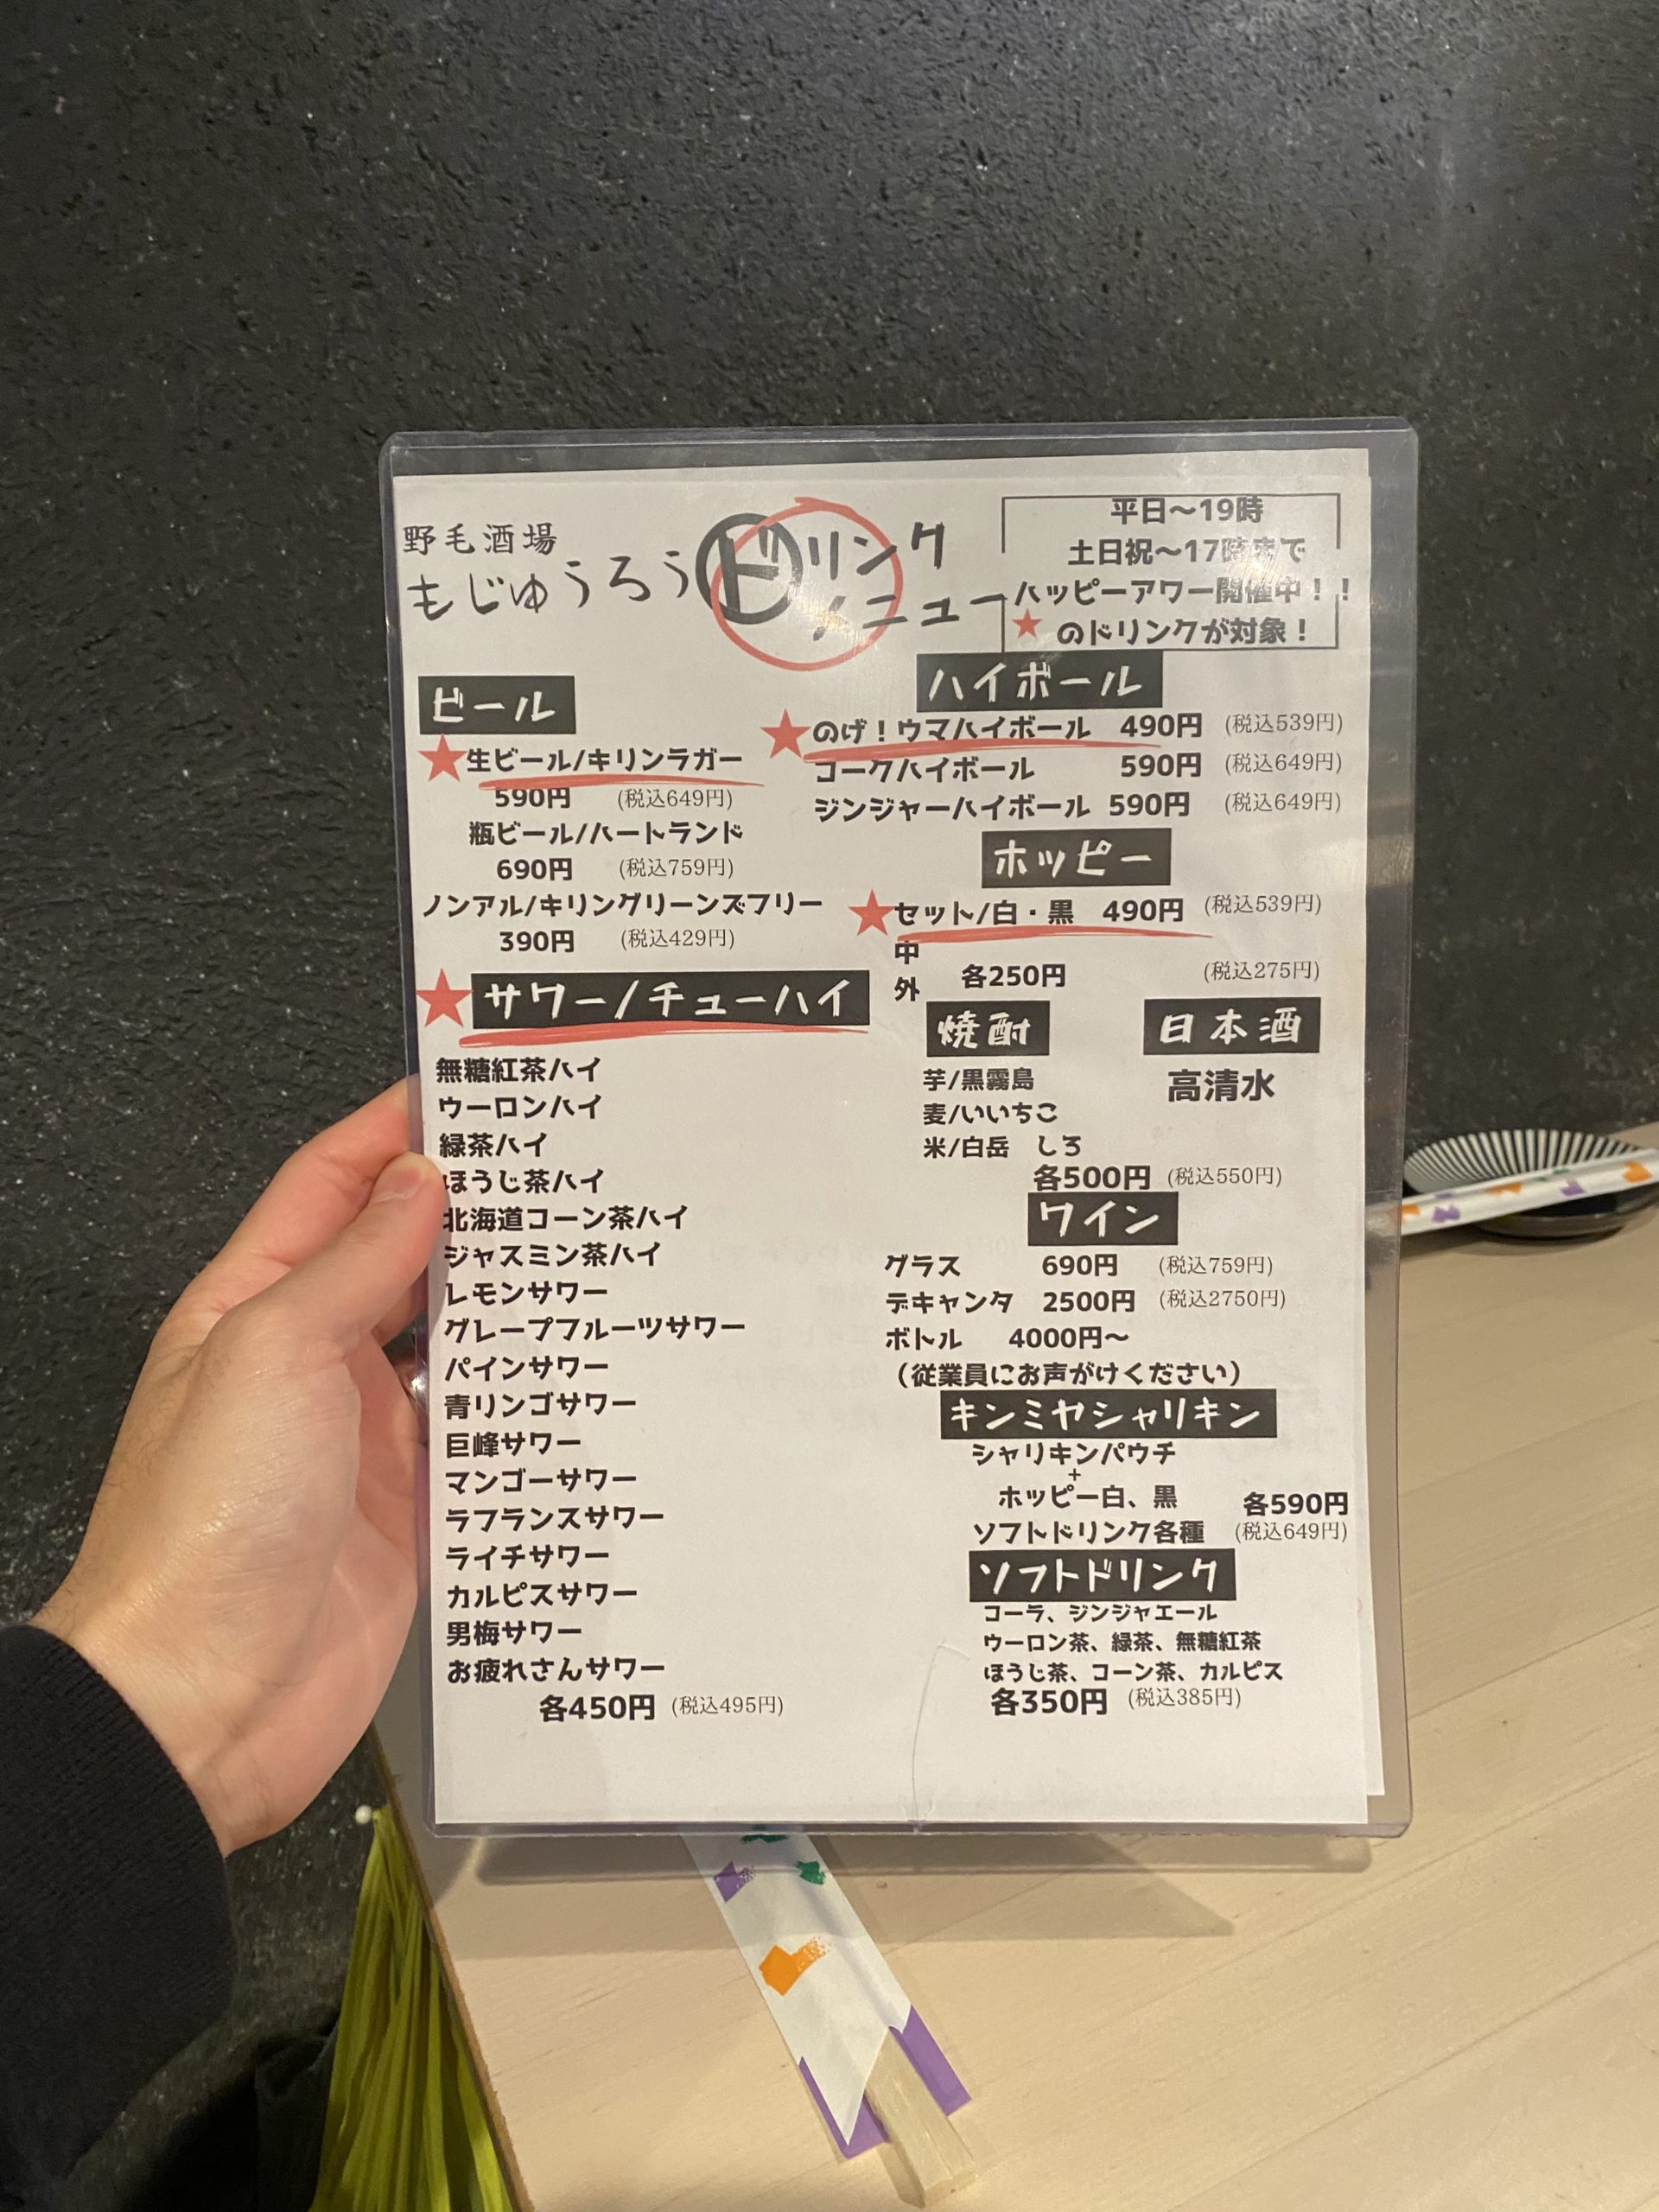 野毛酒場
もじゅうろう
ドリンク
メニュー
平日〜19時
土日祝〜17時まで
ハッピーアワー開催中！！
★のドリンクが対象！
ビール
★生ビール/キリンラガー
590円 (税込649円)
瓶ビール/ハートランド
690円 (税込759円)
ノンアル/キリングリーンズフリー
390円 (税込429円)
★サワー/チューハイ
無糖紅茶ハイ
ウーロンハイ
緑茶ハイ
ほうじ茶ハイ
北海道コーン茶ハイ
ジャスミン茶ハイ
レモンサワー
グレープフルーツサワー
パインサワー
青リンゴサワー
巨峰サワー
マンゴーサワー
ラフランスサワー
ライチサワー
カルピスサワー
男梅サワー
お疲れさんサワー
各450円 (税込495円)
ハイボール
★のげ！ウマハイボール 490円 (税込539円)
コークハイボール 590円 (税込649円)
ジンジャーハイボール 590円 (税込649円)
ホッピー
★セット/白・黒 490円 (税込539円)
中
外 各250円 (税込275円)
焼酎
芋/黒霧島
麦/いいちこ
米/白岳 しろ
日本酒
高清水
各500円 (税込550円)
ワイン
グラス 690円 (税込759円)
デキャンタ 2500円 (税込2750円)
ボトル 4000円〜
（従業員にお声がけください）
キンミヤシャリキン
シャリキンパウチ
+
ホッピー白、黒 各590円
ソフトドリンク各種 (税込649円)
ソフトドリンク
コーラ、ジンジャエール
ウーロン茶、緑茶、無糖紅茶
ほうじ茶、コーン茶、カルピス
各350円 (税込385円)